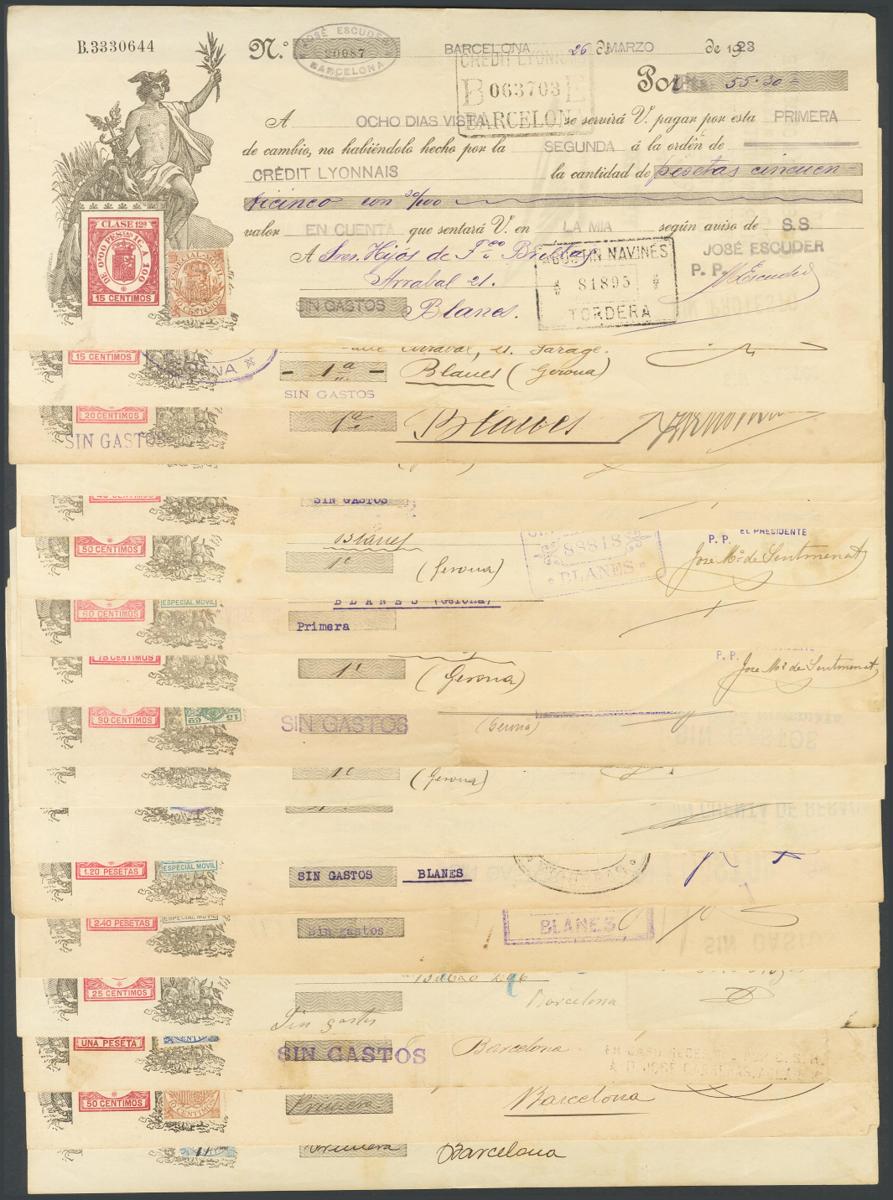 B.3330644
N.º 20087 BARCELONA 26 de MARZO de 1923
JOSÉ ESCUDER
BARCELONA
CRÉDIT LYONNAIS
B 063703 E
BARCELONA
Por 55·30=
A OCHO DIAS VISTA se servirá V. pagar por esta PRIMERA
de cambio, no habiéndolo hecho por la SEGUNDA á la orden de
CRÉDIT LYONNAIS la cantidad de pesetas cincuen-
ticinco con 30/100
valor EN CUENTA que sentará V. en LA MIA según aviso de S.S.
CLASE 12ª
DE 0'00 PESETAS A 100
15 CENTIMOS
ESPECIAL MOVIL
A Sres. Hijos de Fco
Arrabal 21.
SIN GASTOS Blanes.
NAVINÉS
81895
TORDERA
JOSÉ ESCUDER
P. P. Escuder
15 CENTIMOS
Arrabal, 21. Garage.
- 1ª - Blanes (Gerona)
SIN GASTOS
20 CENTIMOS
SIN GASTOS
1ª Blanes
40 CENTIMOS
SIN GASTOS
50 CENTIMOS
Blanes
1ª (Gerona)
88818
BLANES
EL PRESIDENTE
P. P. José Mª de Sentmenat
60 CENTIMOS
ESPECIAL MOVIL
BLANES (Gerona)
Primera
75 CENTIMOS
1ª (Gerona)
P. P. José Mª de Sentmenat
90 CENTIMOS
SIN GASTOS
(Gerona)
1ª (Gerona)
1,20 PESETAS
ESPECIAL MOVIL
SIN GASTOS BLANES
2,40 PESETAS
ESPECIAL MOVIL
Sin gastos
BLANES
25 CENTIMOS
Barcelona
Sin gastos
UNA PESETA
SIN GASTOS Barcelona
50 CENTIMOS
Primera Barcelona
Primera Barcelona